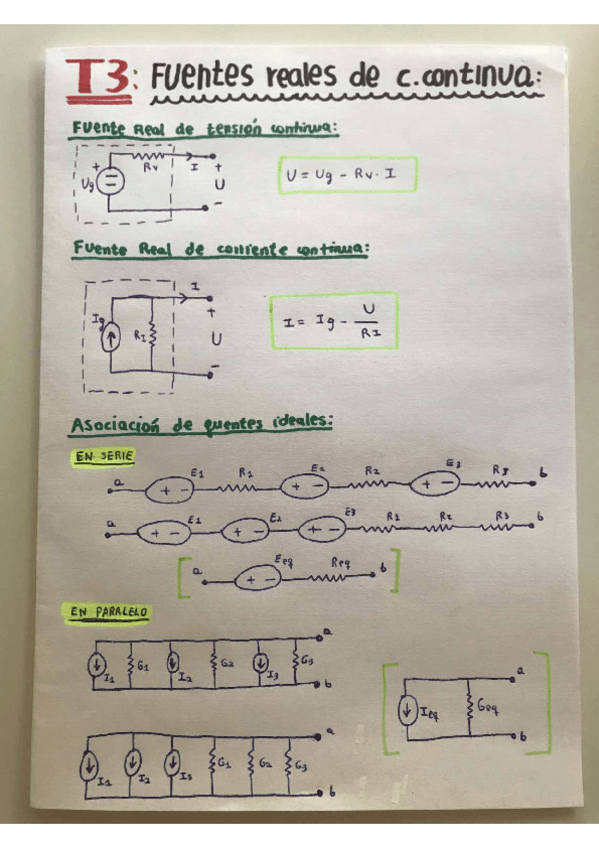 T3: Fuentes reales de c.continua:
Fuente Real de tensión continua:
+ Rv I +
Ug U
-
U = Ug - Rv · I
Fuente Real de corriente continua:
I
+
Ig RI U
-
I = Ig - U/RI
Asociación de fuentes ideales:
EN SERIE
a + - E1 R1 + - E2 R2 + - E3 R3 b
a + - E1 + - E2 + - E3 R1 R2 R3 b
a + - Eeq Req b
EN PARALELO
a
I1 G1 I2 G2 I3 G3
b
a
Ieq Geq
b
a
I1 I2 I3 G1 G2 G3
b